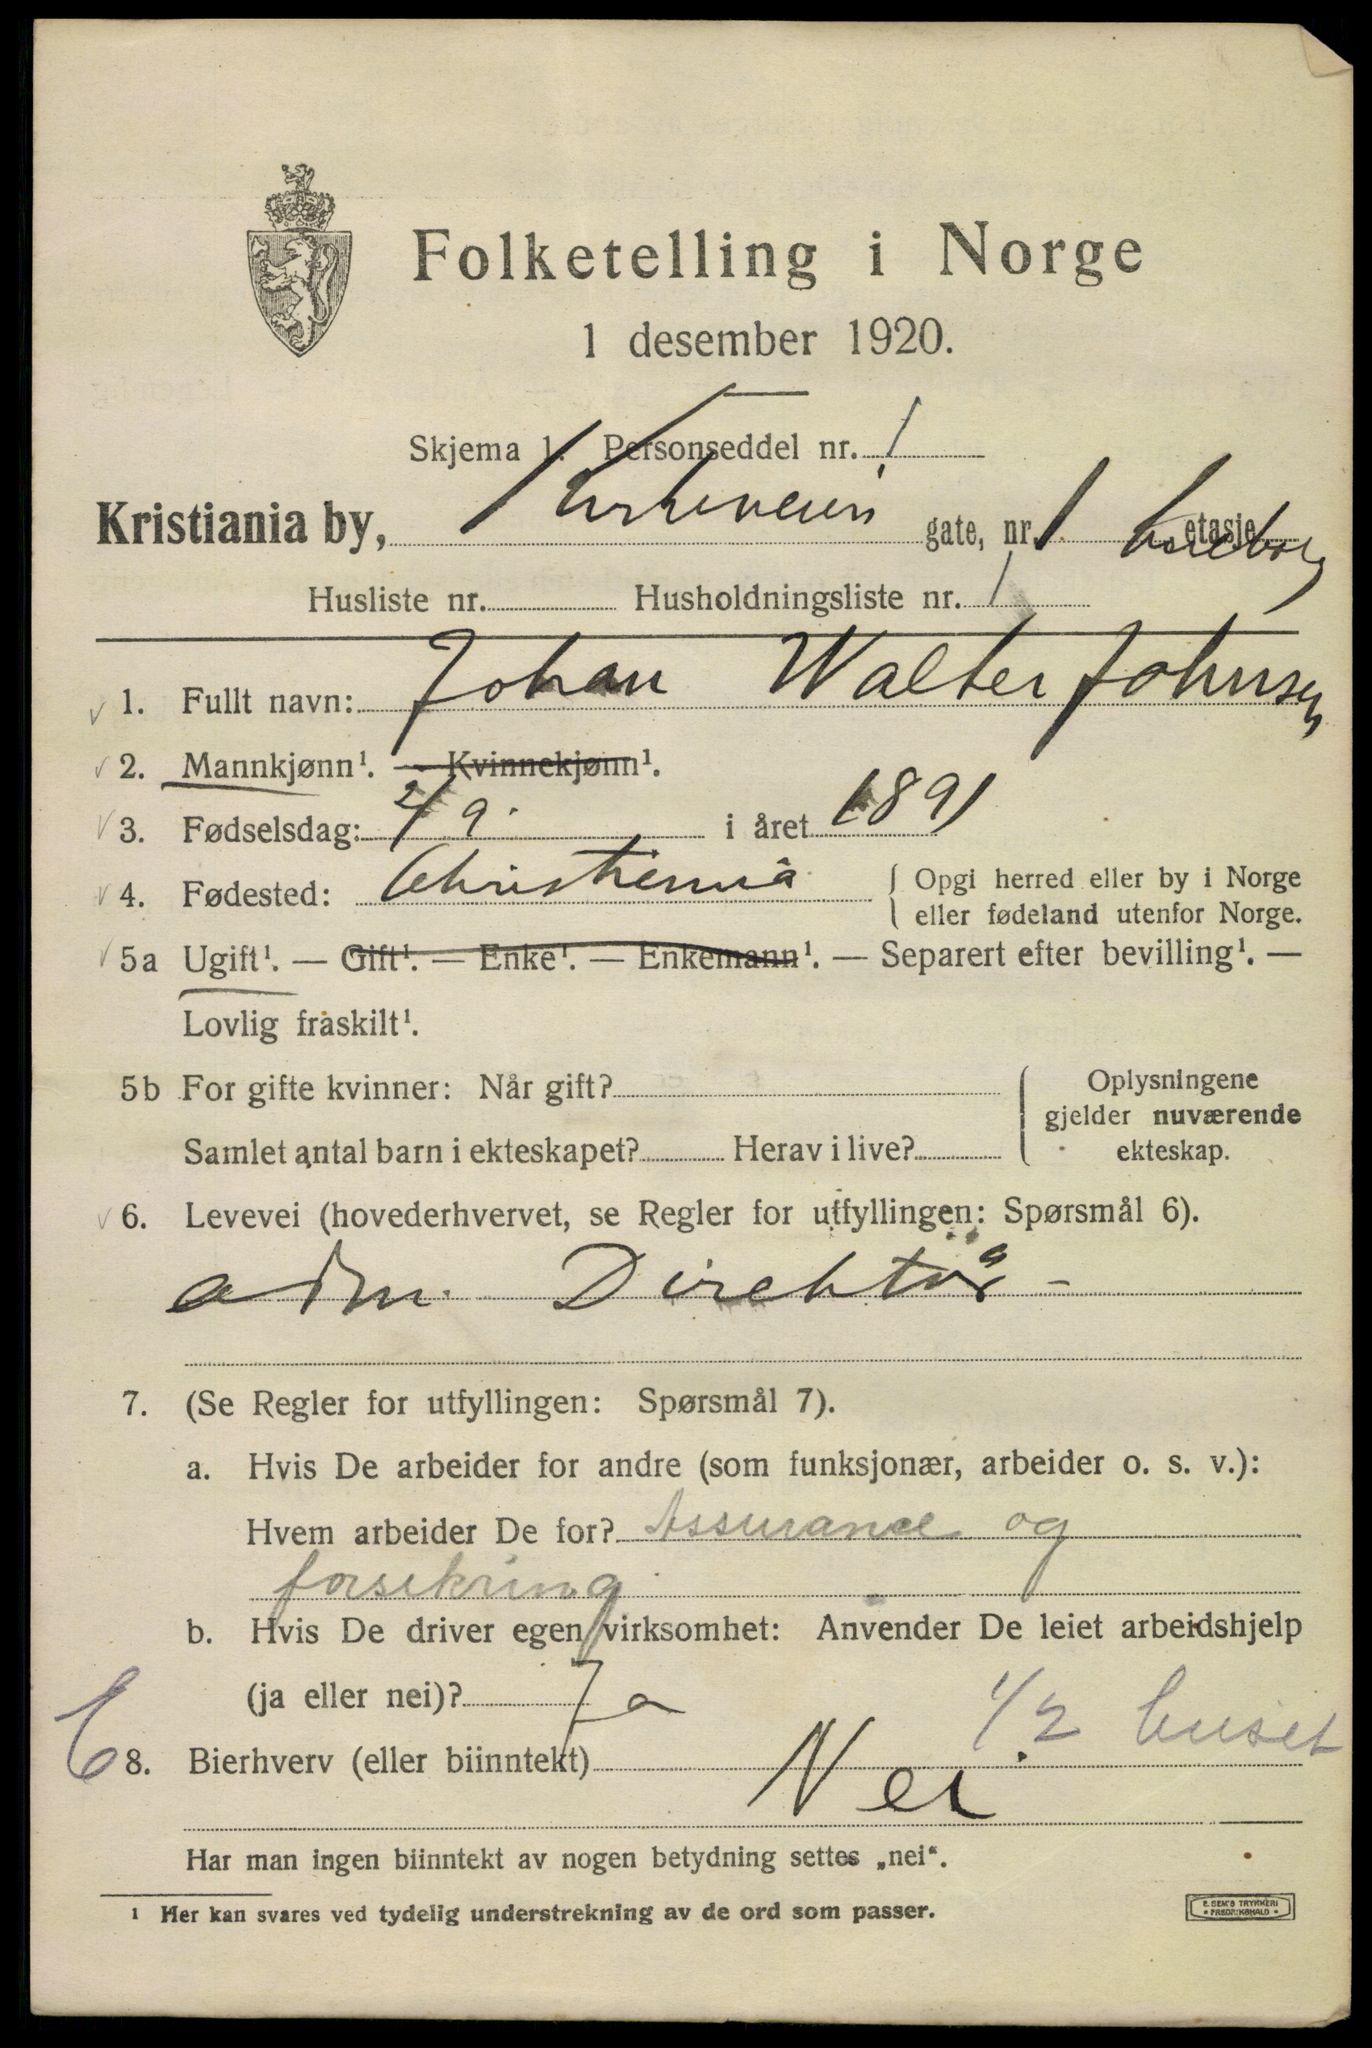 Folketelling i Norge
1 desember 1920.
Skjema 1. Personseddel nr. 1
Kristiania by, Kirkeveien gate, nr. 1 etasje
Husliste nr. Husholdningsliste nr. 1
1. Fullt navn: Johan Walter Johnsen
2. Mannkjønn¹. — Kvinnekjønn¹.
3. Fødselsdag: 2/9. i året 1891
4. Fødested: Christiania { Opgi herred eller by i Norge
eller fødeland utenfor Norge.
5a Ugift¹. — Gift¹. — Enke¹. — Enkemann¹. — Separert efter bevilling¹. —
Lovlig fraskilt¹.
5b For gifte kvinner: Når gift? Oplysningene
gjelder nuværende
Samlet antal barn i ekteskapet? Herav i live? ekteskap.
6. Levevei (hovederhvervet, se Regler for utfyllingen: Spørsmål 6).
adm. Direktør -
7. (Se Regler for utfyllingen: Spørsmål 7).
a. Hvis De arbeider for andre (som funksjonær, arbeider o. s. v.):
Hvem arbeider De for? Assurance og
forsikring
b. Hvis De driver egen virksomhet: Anvender De leiet arbeidshjelp
(ja eller nei)? Ja 1/2 huset
8. Bierhverv (eller biinntekt) Nei
Har man ingen biinntekt av nogen betydning settes „nei“.
¹ Her kan svares ved tydelig understrekning av de ord som passer.
E. SEM'S TRYKKERI
• FREDRIKSHALD •